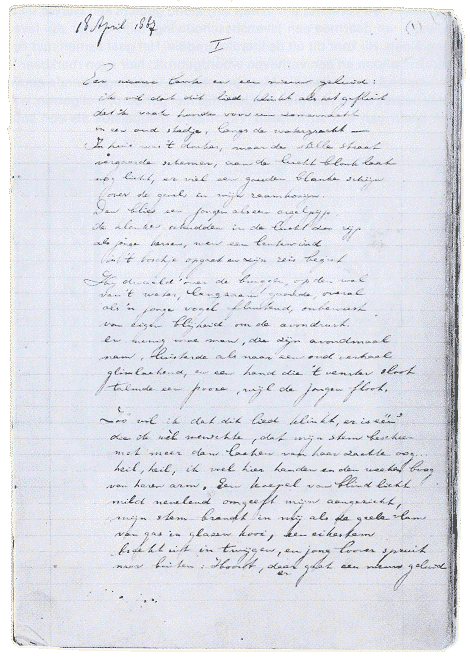 18 April 1887
(1)
I
Een nieuwe lente en een nieuw geluid:
ik wil dat dit lied klinkt als het gefluit
dat ik vaak hoorde voor een zomernacht
in een oud stadje, langs de watergracht —
In huis was 't donker, maar de stille straat
vergaarde schemer, aan de lucht blonk laat
nog licht, er viel een gouden blanke schijn
over de gevels in mijn raamkozijn.
Dan blies een jongen als een orgelpijp.
de klanken schudden in de lucht zoo rijp
als jonge kersen, wen een lentewind
in 't boschje opgaat en zijn reis begint
Hij dwaald' over de bruggen, op den wal
van 't water, langzaam gaande, overal
als 'n jonge vogel fluitend, onbewust
van eigen blijheid om de avondrust.
en menig moe man, die zijn avondmaal
nam, luisterde als naar een oud verhaal
glimlachend, en een hand die 't venster sloot
talmde een pooze, wijl de jongen floot.
Zóó wil ik dat dit lied klinkt, er is één
die ik wèl wenschte, dat mijn stem bescheen
met meer dan lachen van haar zachte oog.
heil, heil, ik voel hier handen en den weeken boog
van haren arm. Een koepel van blind licht
mild nevelend omgeeft mijn aangezicht,
mijn stem brandt in mij als de geele vlam
van gas in glazen kooi, een eikestam
breekt uit in twijgen, en jong loover spruit
naar buiten: Hoort, daar gaat een nieuw geluid
er